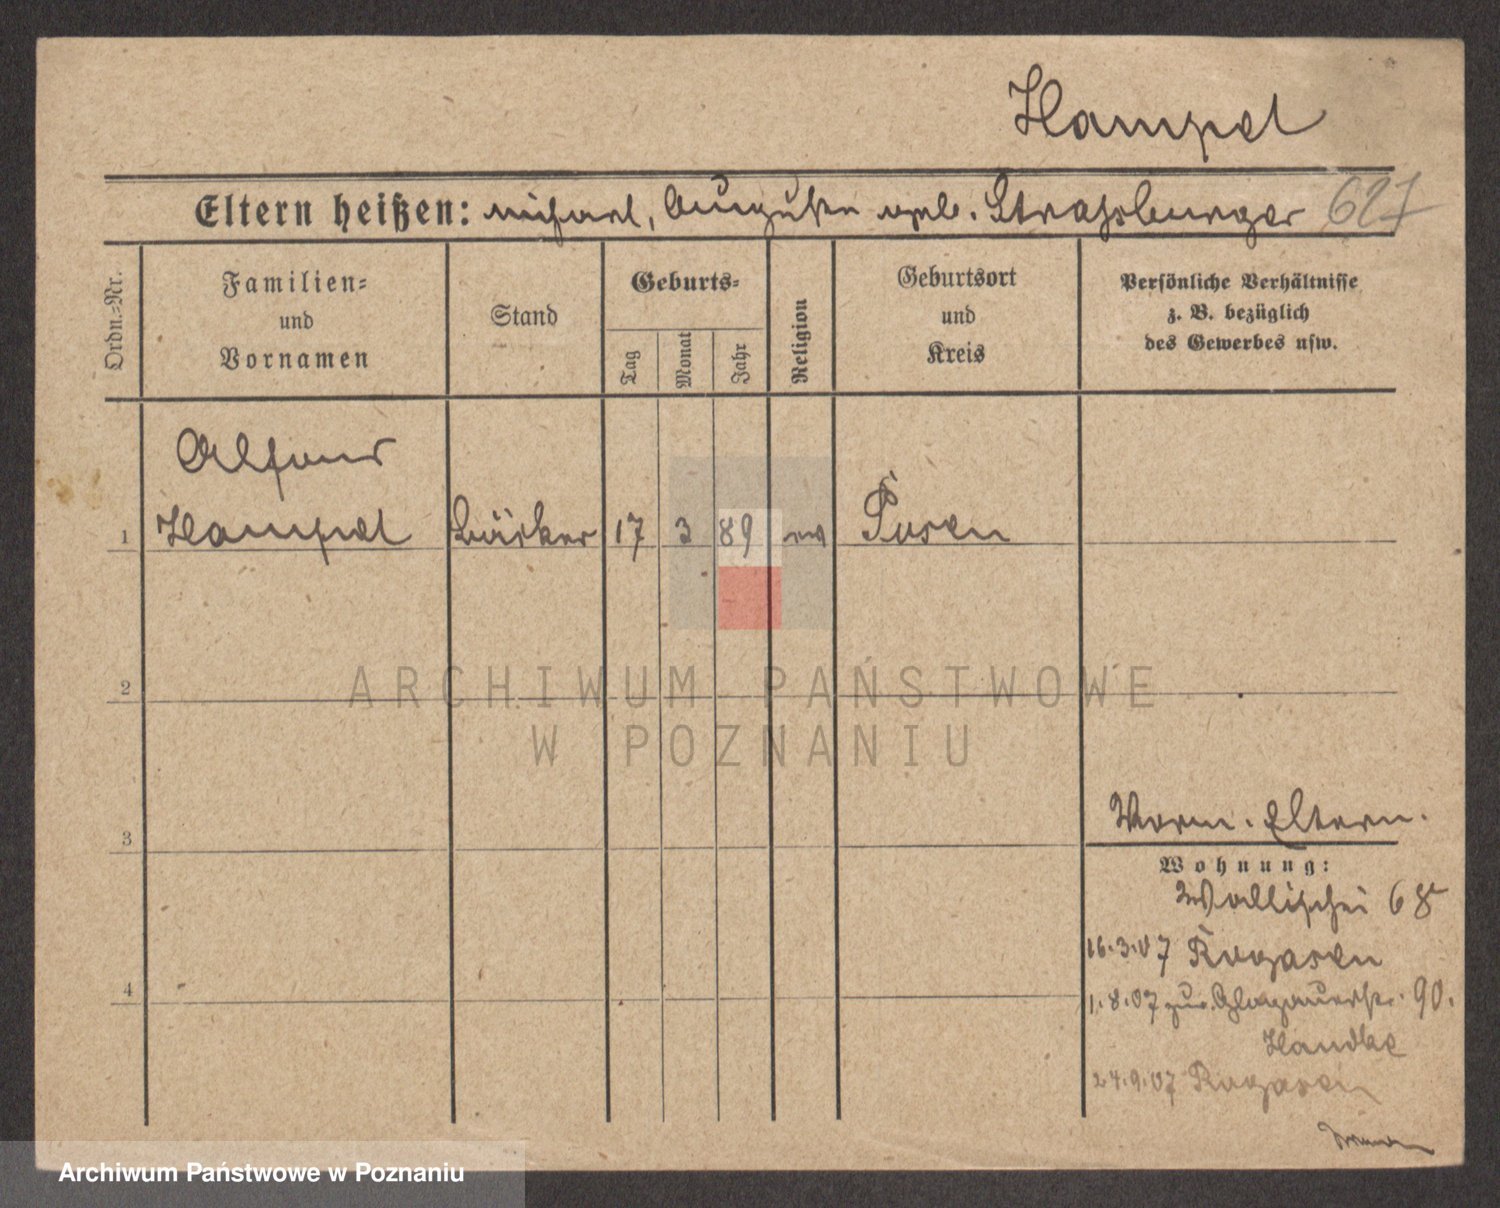 Hampel
Eltern heißen: Michael, Auguste geb. Strahsburger 627
Ordn.-Nr.
Familien-
und
Vornamen
Stand
Geburts-
Tag
Monat
Jahr
Religion
Geburtsort
und
Kreis
Persönliche Verhältnisse
z. B. bezüglich
des Gewerbes usw.
Alfons
1 Hampel Bäcker 17 3 89 ev Posen
2
3
4
Vorm. Eltern.
Wohnung:
Wallischei 68
16.3.07 Rogasen
1.8.07 zur. Glogauerstr. 90.
Handke
24.9.07 Rogasen
ARCHIWUM PAŃSTWOWE
W POZNANIU
Archiwum Państwowe w Poznaniu